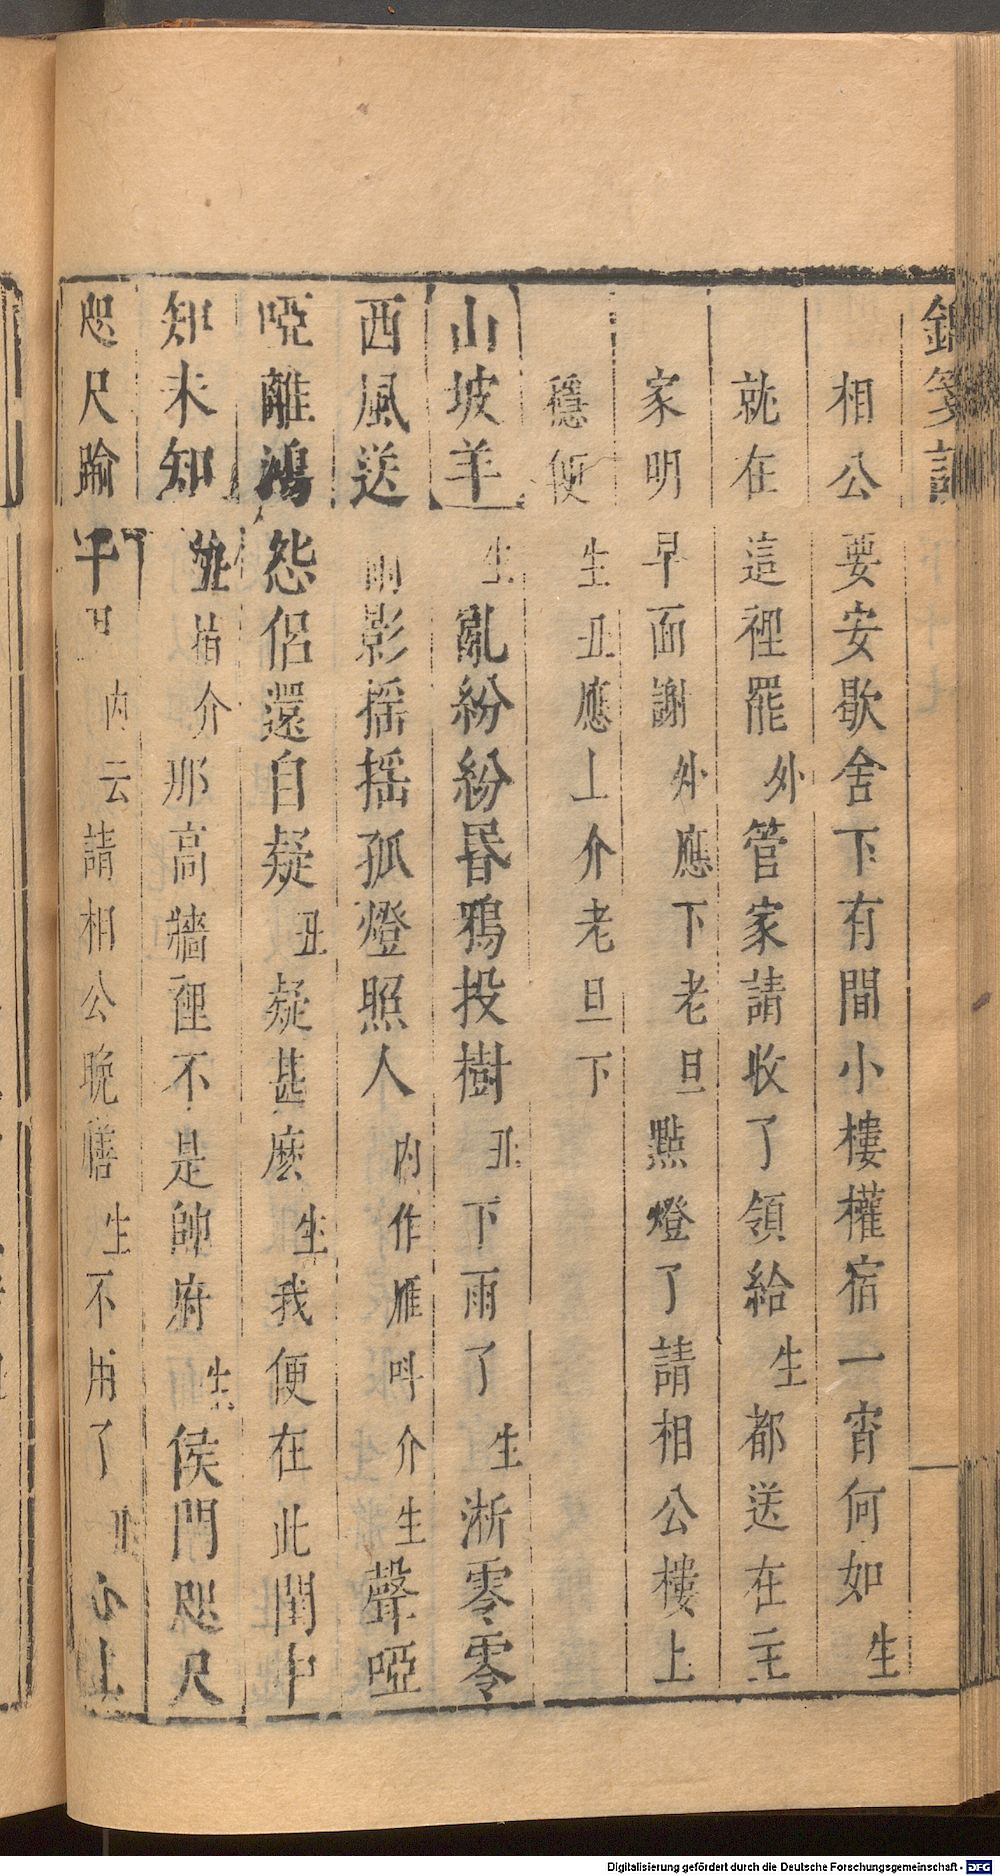 錦箋記
相公要安歇舍下有間小樓權宿一宵何如生
就在這裡罷外管家請收了領給生都送在主
家明早面謝外應下老旦點燈了請相公樓上
穩便生丑應上介老旦下
山坡羊生亂紛紛昏鴉投樹丑下雨了生淅零零
西風送雨影搖搖孤燈照人內作雁呌介生聲啞
啞離鴻怨侶還自疑丑疑甚麽生我便在此閨中
知未知並指介那高牆裡不是帥府生侯門咫尺
咫尺踰千里內云請相公晚膳生不用了丑小上
Digitalisierung gefördert durch die Deutsche Forschungsgemeinschaft - DFG